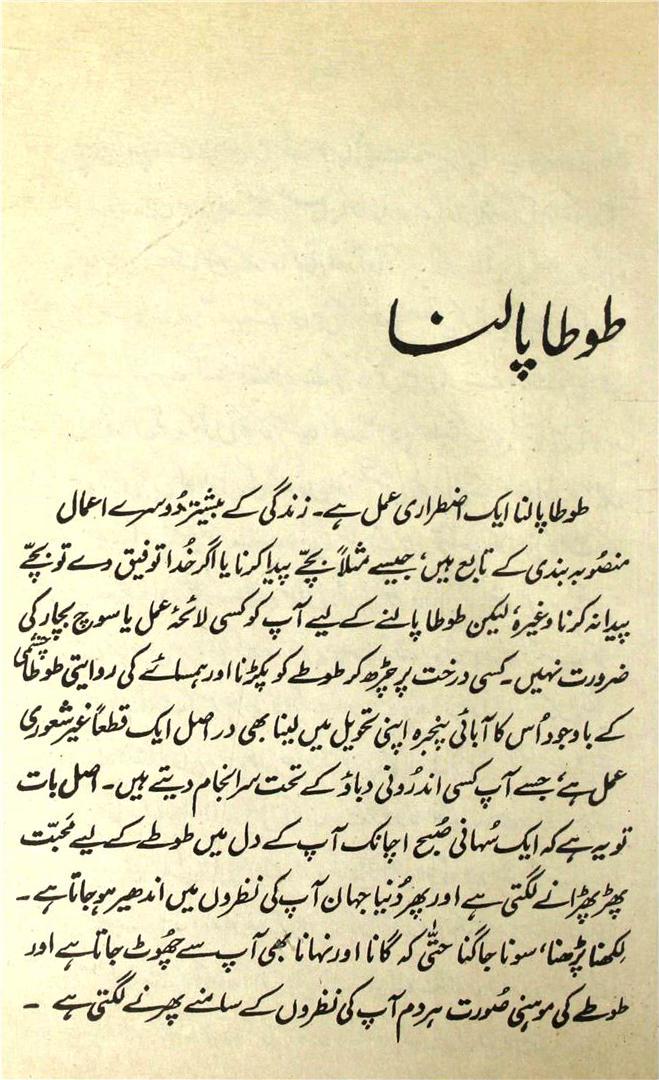 طوطا پالنا
طوطا پالنا ایک اضطراری عمل ہے۔ زندگی کے بیشتر دُوسرے اعمال
منصُوبہ بندی کے تابع ہیں، جیسے مثلاً بچّے پیدا کرنا یا اگر خُدا توفیق دے تو بچّے
پیدا نہ کرنا وغیرہ، لیکن طوطا پالنے کے لیے آپ کو کسی لائحۂ عمل یا سوچ بچار کی
ضرورت نہیں۔ کسی درخت پر چڑھ کر طوطے کو پکڑنا اور ہمسائے کی روایتی طوطا چشمی
کے باوجود اُس کا آبائی پنجرہ اپنی تحویل میں لینا بھی در اصل ایک قطعاً غیر شعوری
عمل ہے، جسے آپ کسی اندرُونی دباؤ کے تحت سرانجام دیتے ہیں۔ اصل بات
تو یہ ہے کہ ایک سُہانی صُبح اچانک آپ کے دل میں طوطے کے لیے مُحبّت
پھڑپھڑانے لگتی ہے اور پھر دُنیا جہان آپ کی نظروں میں اندھیر ہو جاتا ہے۔
لِکھنا پڑھنا، سونا جاگنا حتّٰی کہ گانا اور نہانا بھی آپ سے چھُوٹ جاتا ہے اور
طوطے کی موہنی صُورت ہر دم آپ کی نظروں کے سامنے پھرنے لگتی ہے ۔